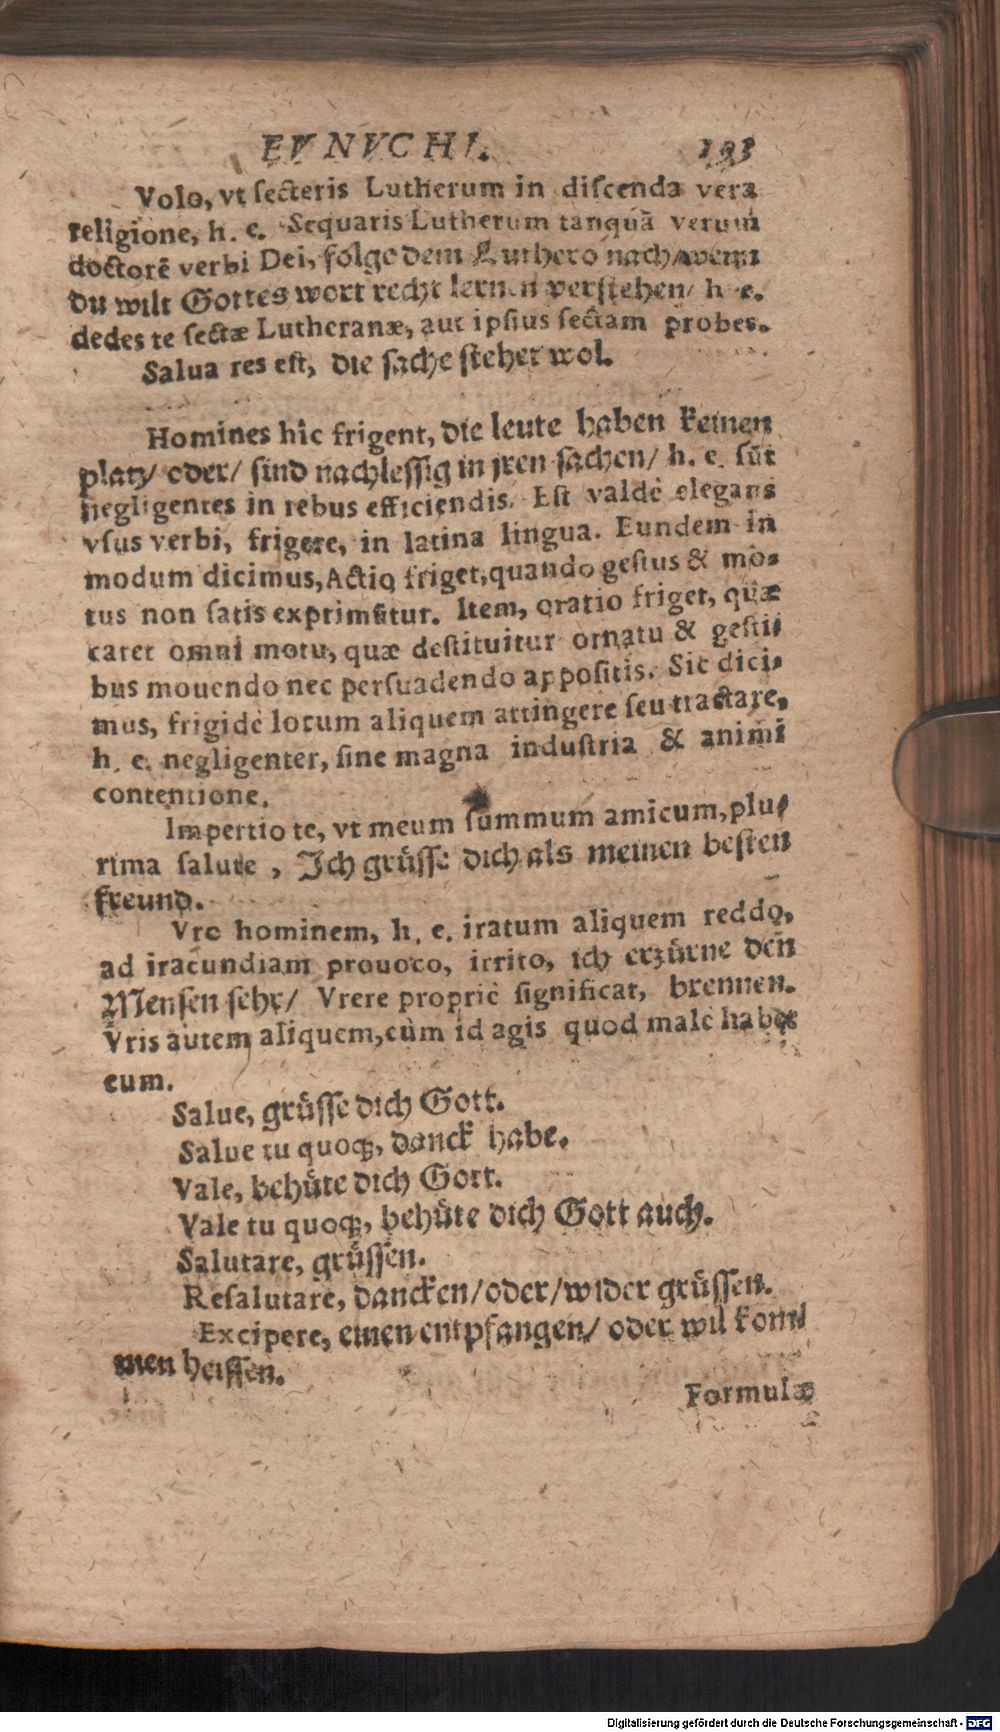 EVNVCHI. 193
Volo, vt secteris Lutherum in discenda vera
religione, h. e. Sequaris Lutherum tanquā verum
doctorē verbi Dei, folge dem Luthero nach/wenn
du wilt Gottes wort recht lernen verstehen/ h. e.
dedes te sectæ Lutheranæ, aut ipsius sectam probes.
Salua res est, die sache stehet wol.
Homines hîc frigent, die leute haben keinen
platz/ oder/ sind nachlessig in jren sachen/ h. e. sūt
negligentes in rebus efficiendis. Est valdè elegans
vsus verbi, frigere, in latina lingua. Eundem in
modum dicimus, Actio friget, quando gestus & mo-
tus non satis exprimūtur. Item, oratio friget, quæ
caret omni motu, quæ destituitur ornatu & gesti-
bus mouendo nec persuadendo appositis. Sic dici-
mus, frigidè locum aliquem attingere seu tractare,
h. e. negligenter, sine magna industria & animi
contentione.
Impertio te, vt meum summum amicum, plu-
rima salute, Ich grüsse dich als meinen besten
freund.
Vro hominem, h. e. iratum aliquem reddo,
ad iracundiam prouoco, irrito, ich erzürne den
Mensen sehr/ Vrere propriè significat, brennen.
Vris autem aliquem, cùm id agis quod malè habet
eum.
Salue, grüsse dich Gott.
Salue tu quoq;, danck habe.
Vale, behüte dich Gott.
Vale tu quoq;, behüte dich Gott auch.
Salutare, grüssen.
Resalutare, dancken/oder/wider grüssen.
Excipere, einen entpfangen/ oder wil kom-
men heissen.
Formulæ
Digitalisierung gefördert durch die Deutsche Forschungsgemeinschaft - DFG